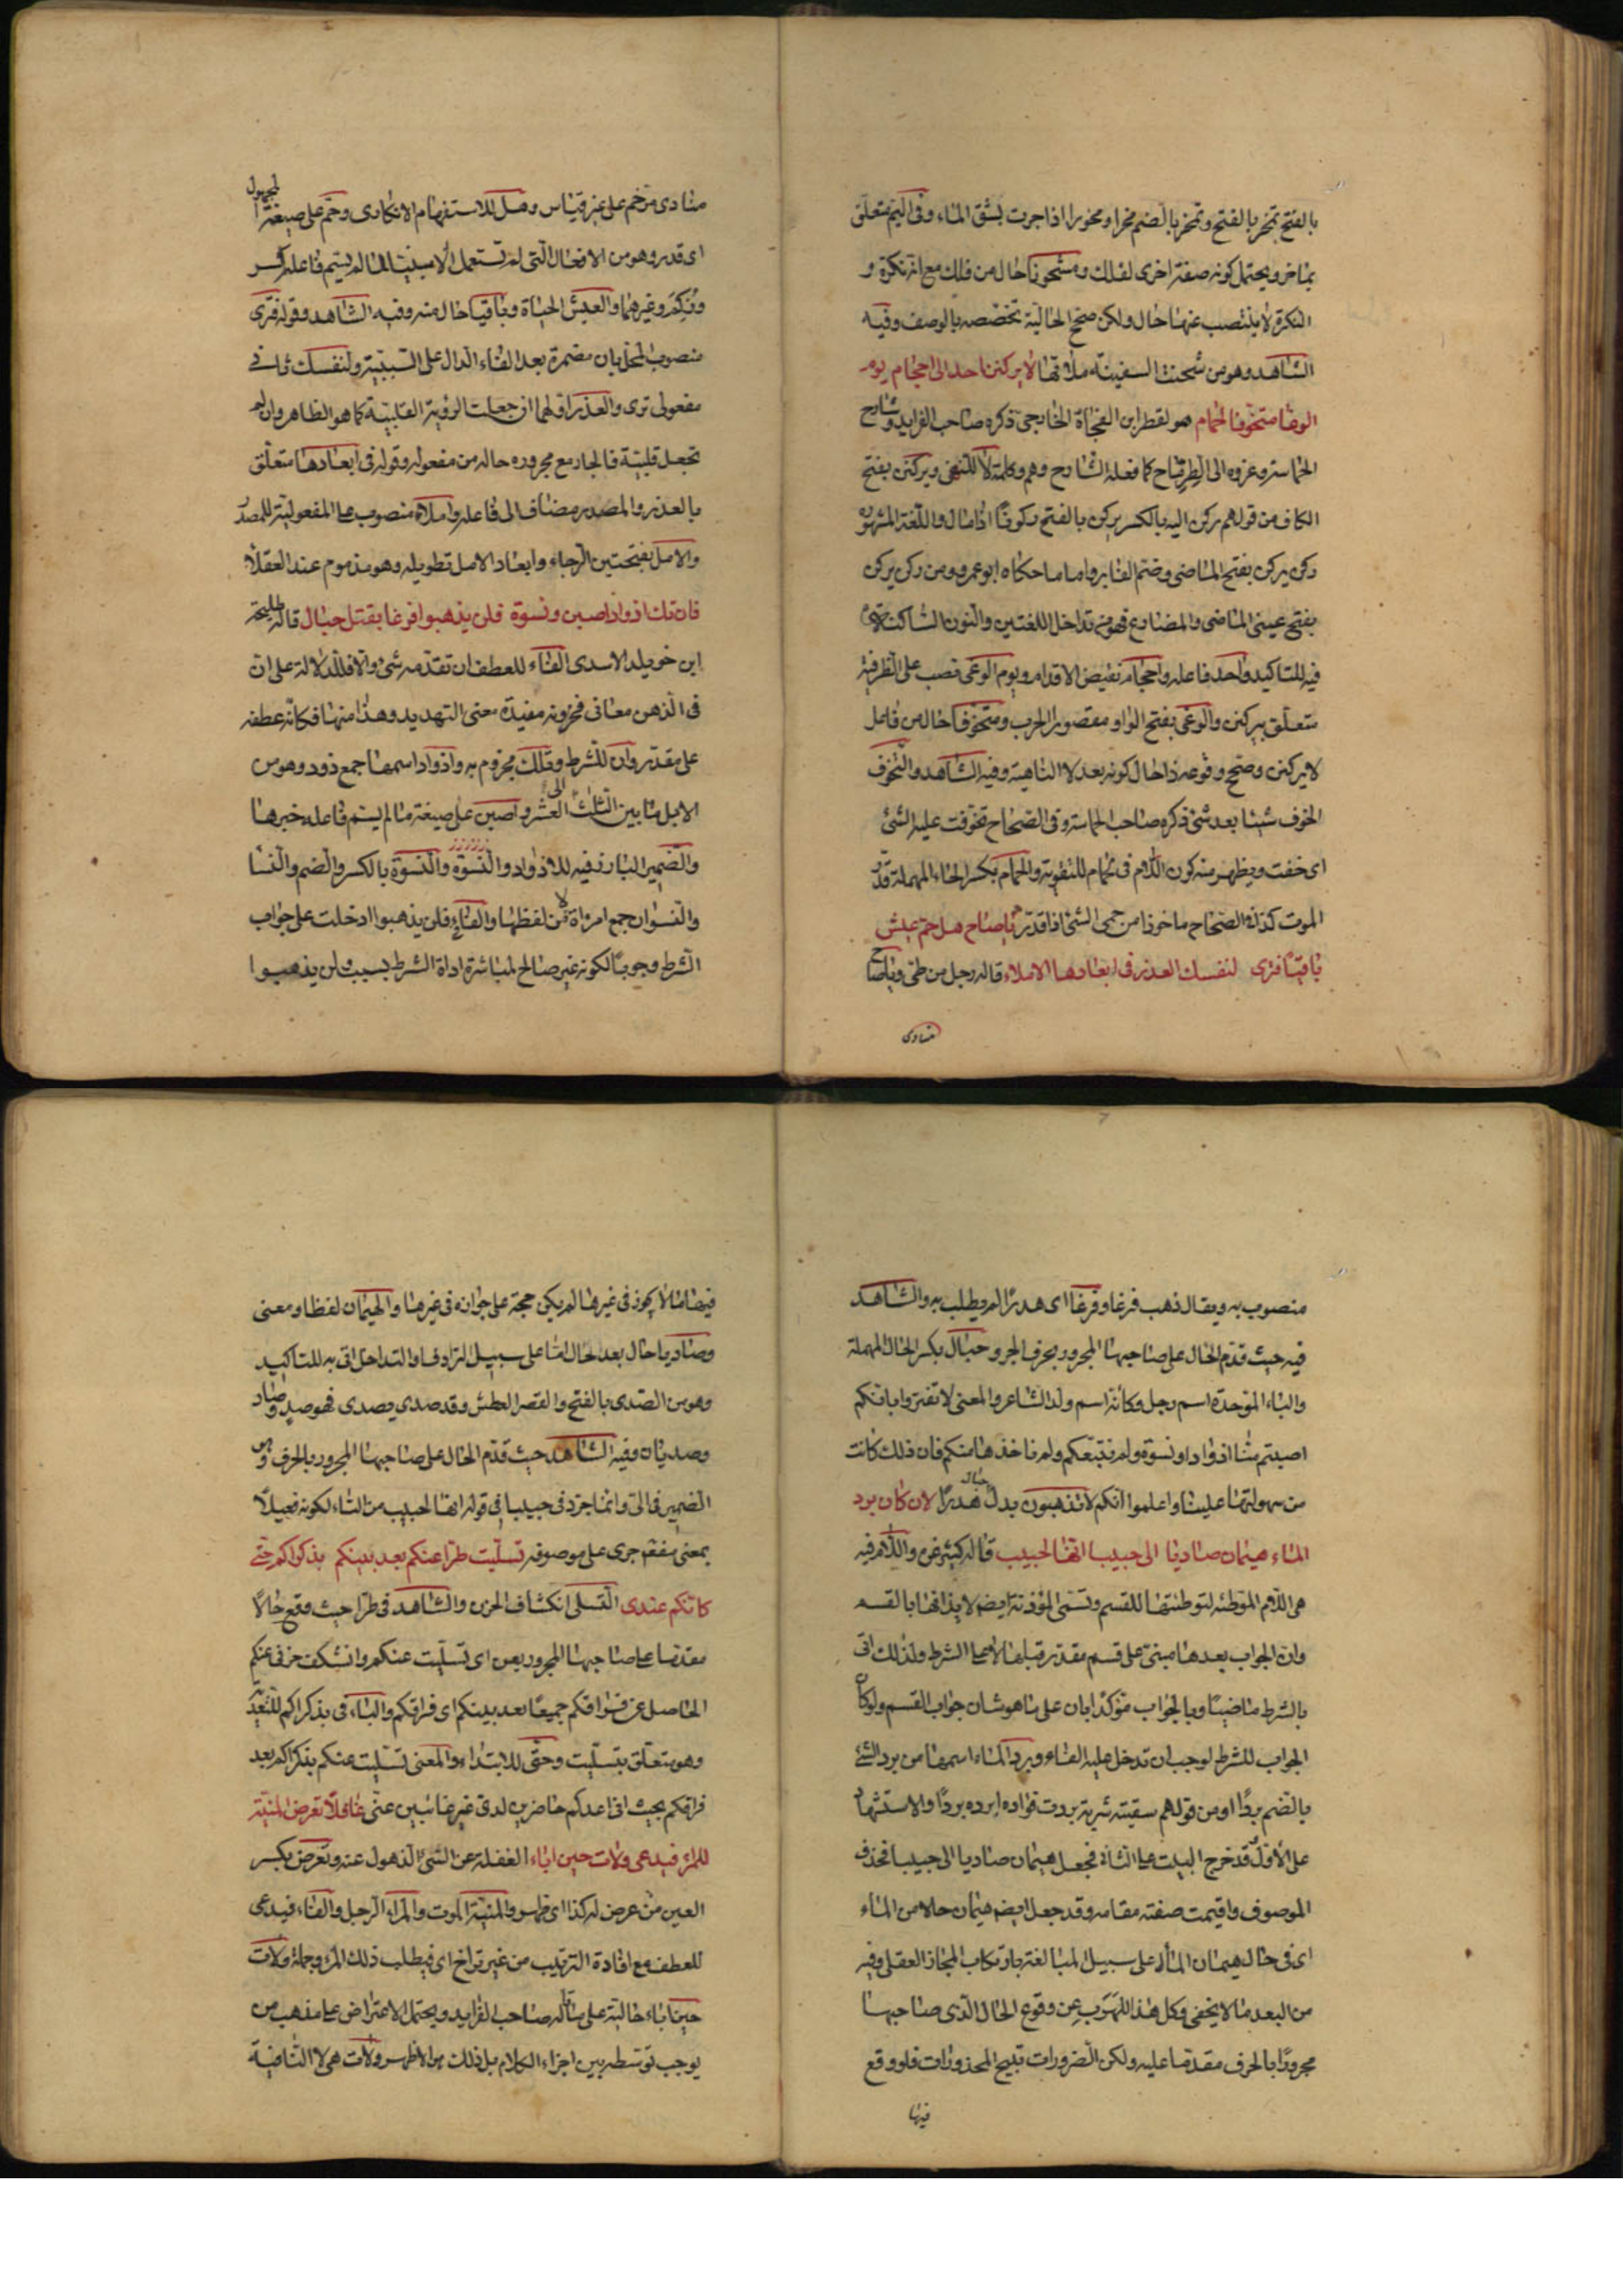 بالفتح تمخر بالفتح وتمخر بالضم مخرا ومخورا اذا جرت بشق الماء وفى اليم متعلق
بماخر ويحتمل كونه صفة اخرى لفلك ومشحونا حال من فلك مع انه نكرة و
النكرة لا ينتصب عنها حال ولكن صحح الحالية تخصصه بالوصف وفيه
الشاهد وهو من شحنت السفينة ملأتها لا يركنن احد الى احجام يوم
الوغا متخوفا لحمام هو لقطرى ابن الفجاة الخارجى ذكره صاحب الفرايد وشارح
الحماسة وعزوه الى الطرماح كما فعله الشارح وهم وكلمة لا للنهى ويركنن بفتح
الكاف من قولهم ركن اليه بالكسر يركن بالفتح ركونا اذا مال واللغة المشهورة
ركن يركن بفتح الماضى وضم الغابر واما ما حكاه ابو عمرو من ركن يركن
بفتح عينى الماضى والمضارع فهو من تداخل اللغتين والنون الساكنة
فيه للتاكيد واحد فاعله واحجام نقيض الاقدام ويوم الوغى نصب على الظرفية
متعلق بيركنن والوغى بفتح الواو مقصورا الحرب ومتخوفا حال من فاعل
لا يركنن وصحح وقوعه ذا حال كونه بعد لا الناهية وفيه الشاهد والتخوف
الخوف شيئا بعد شئ ذكره صاحب الحماسة وفى الصحاح تخوفت عليه الشئ
اى خفت ويظهر منه كون اللام فى لحمام للتقوية والحمام بكسر الحاء المهملة قدر
الموت كذا فى الصحاح ماخوذ من حمى الشئ اذا قدر يا صاح هل حم عيش
باقيا فترى لنفسك العذر فى ابعادها الاملا قاله رجل من طى ويا صاح
منادى
منادى مرخم على غير قياس وهل للاستفهام الانكارى وحم على صيغة المجهول
اى قدر وهو من الافعال التى لم تستعمل الا مبنيا لما لم يسم فاعله كسر
وزكم وغيرهما والعيش الحياة وباقيا حال منه وفيه الشاهد وقوله فترى
منصوب المحل بان مضمرة بعد الفاء الدال على السببية ولنفسك ثانى
مفعولى ترى والعذر اولهما ان جعلت الرؤية القلبية كما هو الظاهر وان لم
تجعل قلبية فالجار مع مجروره حاله من مفعوله وقوله فى ابعادها متعلق
بالعذر والمصدر مضاف الى فاعله واملا منصوب على المفعولية للمصدر
والامل بفتحتين الرجاء وابعاد الامل تطويله وهو مذموم عند العقلا
فان تك اذواد اصبن ونسوة فلن يذهبوا فرغا بقتل حبال قاله طليحة
ابن خويلد الاسدى الفاء للعطف ان تقدمه شئ والا فللدلالة على ان
فى الذهن معانى مخزونة مفيدة معنى التهديد وهذا منها فكانه عطفه
على مقدر وان للشرط وتلك مجزوم به واذواد اسمها جمع ذود وهو من
الابل ما بين الثلث الى العشر واصبن على صيغة ما لم يسم فاعله خبرها
والضمير البارز فيه للاذواد والنسوة والنسوة بالكسر والضم والنسا
والنسوان جمع امراة لا من لفظها والفاء فلن يذهبوا ادخلت على جواب
الشرط وجوبا لكونه غير صالح لمباشرة اداة الشرط بسبب ولن يذهبوا
منصوب به ويقال ذهب فرغا وفرغا اى هدرا لم يطلب به والشاهد
فيه حيث قدم الحال على صاحبها المجرور بحرف الجر وحبال بكسر الحاء المهملة
والباء الموحدة اسم رجل وكانه اسم ولد الشاعر والمعنى لا تغتروا بانكم
اصبتم منا اذوادا ونسوة ولم نتبعكم ولم ناخذها منكم فان ذلك كانت
من سهولتها علينا واعلموا انكم لا تذهبون بدل حبال هدرا لان كان برد
الماء هيمان صاديا الى حبيبا انها لحبيب قاله كثير عزة واللام فيه
هى اللام الموطئة لتوطئتها للقسم وتسمى المؤذنة ايضا لايذانها بالقسم
وان الجواب بعدها مبنى على قسم مقدر قبلها لا على الشرط ولذلك اتى
بالشرط ماضيا وبالجواب مؤكدا بان على ما هو شان جواب القسم ولو كان
الجواب للشرط لوجب ان تدخل عليه الفاء وبرد الماء اسمها من برد الشئ
بالضم بردا او من قولهم سقيته شربة بردت فؤاده ابرده بردا والاستشهاد
على الاول قد خرج البيت على الثانى فجعل هيمان صاديا الى حبيبا فحذف
الموصوف واقيمت صفته مقامه وقد جعل ايضا هيمان حالا من الماء
اى فى حال هيمان الماء على سبيل المبالغة بارتكاب المجاز العقلى وفيه
من البعد ما لا يخفى وكل هذا للهرب عن وقوع الحال الذى صاحبها
مجرورا بالحرف مقدما عليه ولكن الضرورات تبيح المحذورات فلو وقع
فيها
فيها ما لا يجوز فى غيرها لم يكن حجة على جوازه فى غيرها والهيمان لفظا ومعنى
وصاديا حال بعد الحال اما على سبيل الترادف او التداخل اتى به للتاكيد
وهو من الصدى بالفتح والقصر العطش وقد صدى يصدى فهو صد وصاد
وصديان وفيه الشاهد حيث قدم الحال على صاحبها المجرور بالحرف وهو
الضمير فى الى وانما جرد فى حبيبا فى قوله انها لحبيب من التاء لكونه فعيلا
بمعنى مفعول جرى على موصوفه تسليت طرا عنكم بعد بينكم بذكراكم حتى
كانكم عندى التسلى انكشاف الحزن والشاهد فى طرا حيث وقع حالا
مقدما على صاحبها المجرور بعن اى تسليت عنكم وانكشف حزنى عنكم
الحاصل عن فراقكم جميعا بعد بينكم اى فراقكم والباء فى بذكراكم للتعدية
وهو متعلق بتسليت وحتى للابتداء والمعنى تسليت عنكم بذكراكم بعد
فراقكم بحيث انى اعدكم حاضرين لدى غير غائبين عنى غافلا تعرض المنية
للمرء فيدعى ولات حين اباء الغفلة عن الشئ الذهول عنه وتعرض بكسر
العين من عرض له كذا اى ظهر والمنية الموت والمراء الرجل والفاء فيدعى
للعطف مع افادة الترتيب من غير تراخ اى فيطلب ذلك المرء وجملة ولات
حين اباء حالية على ما قاله صاحب الفرايد ويحتمل الاعتراض على مذهب من
يوجب توسطه بين اجزاء الكلام بل ذلك هو الاظهر ولات هى لا النافية